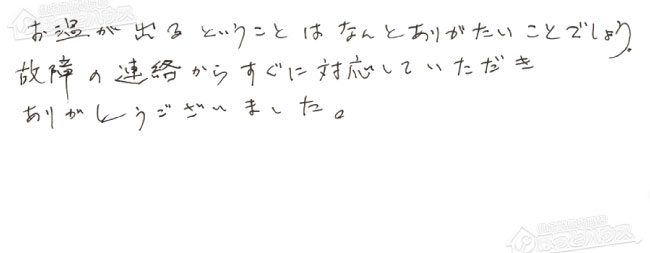 お温が出るということはなんとありがたいことでしょう。
故障の連絡からすぐに対応していただき
ありがとうございました。